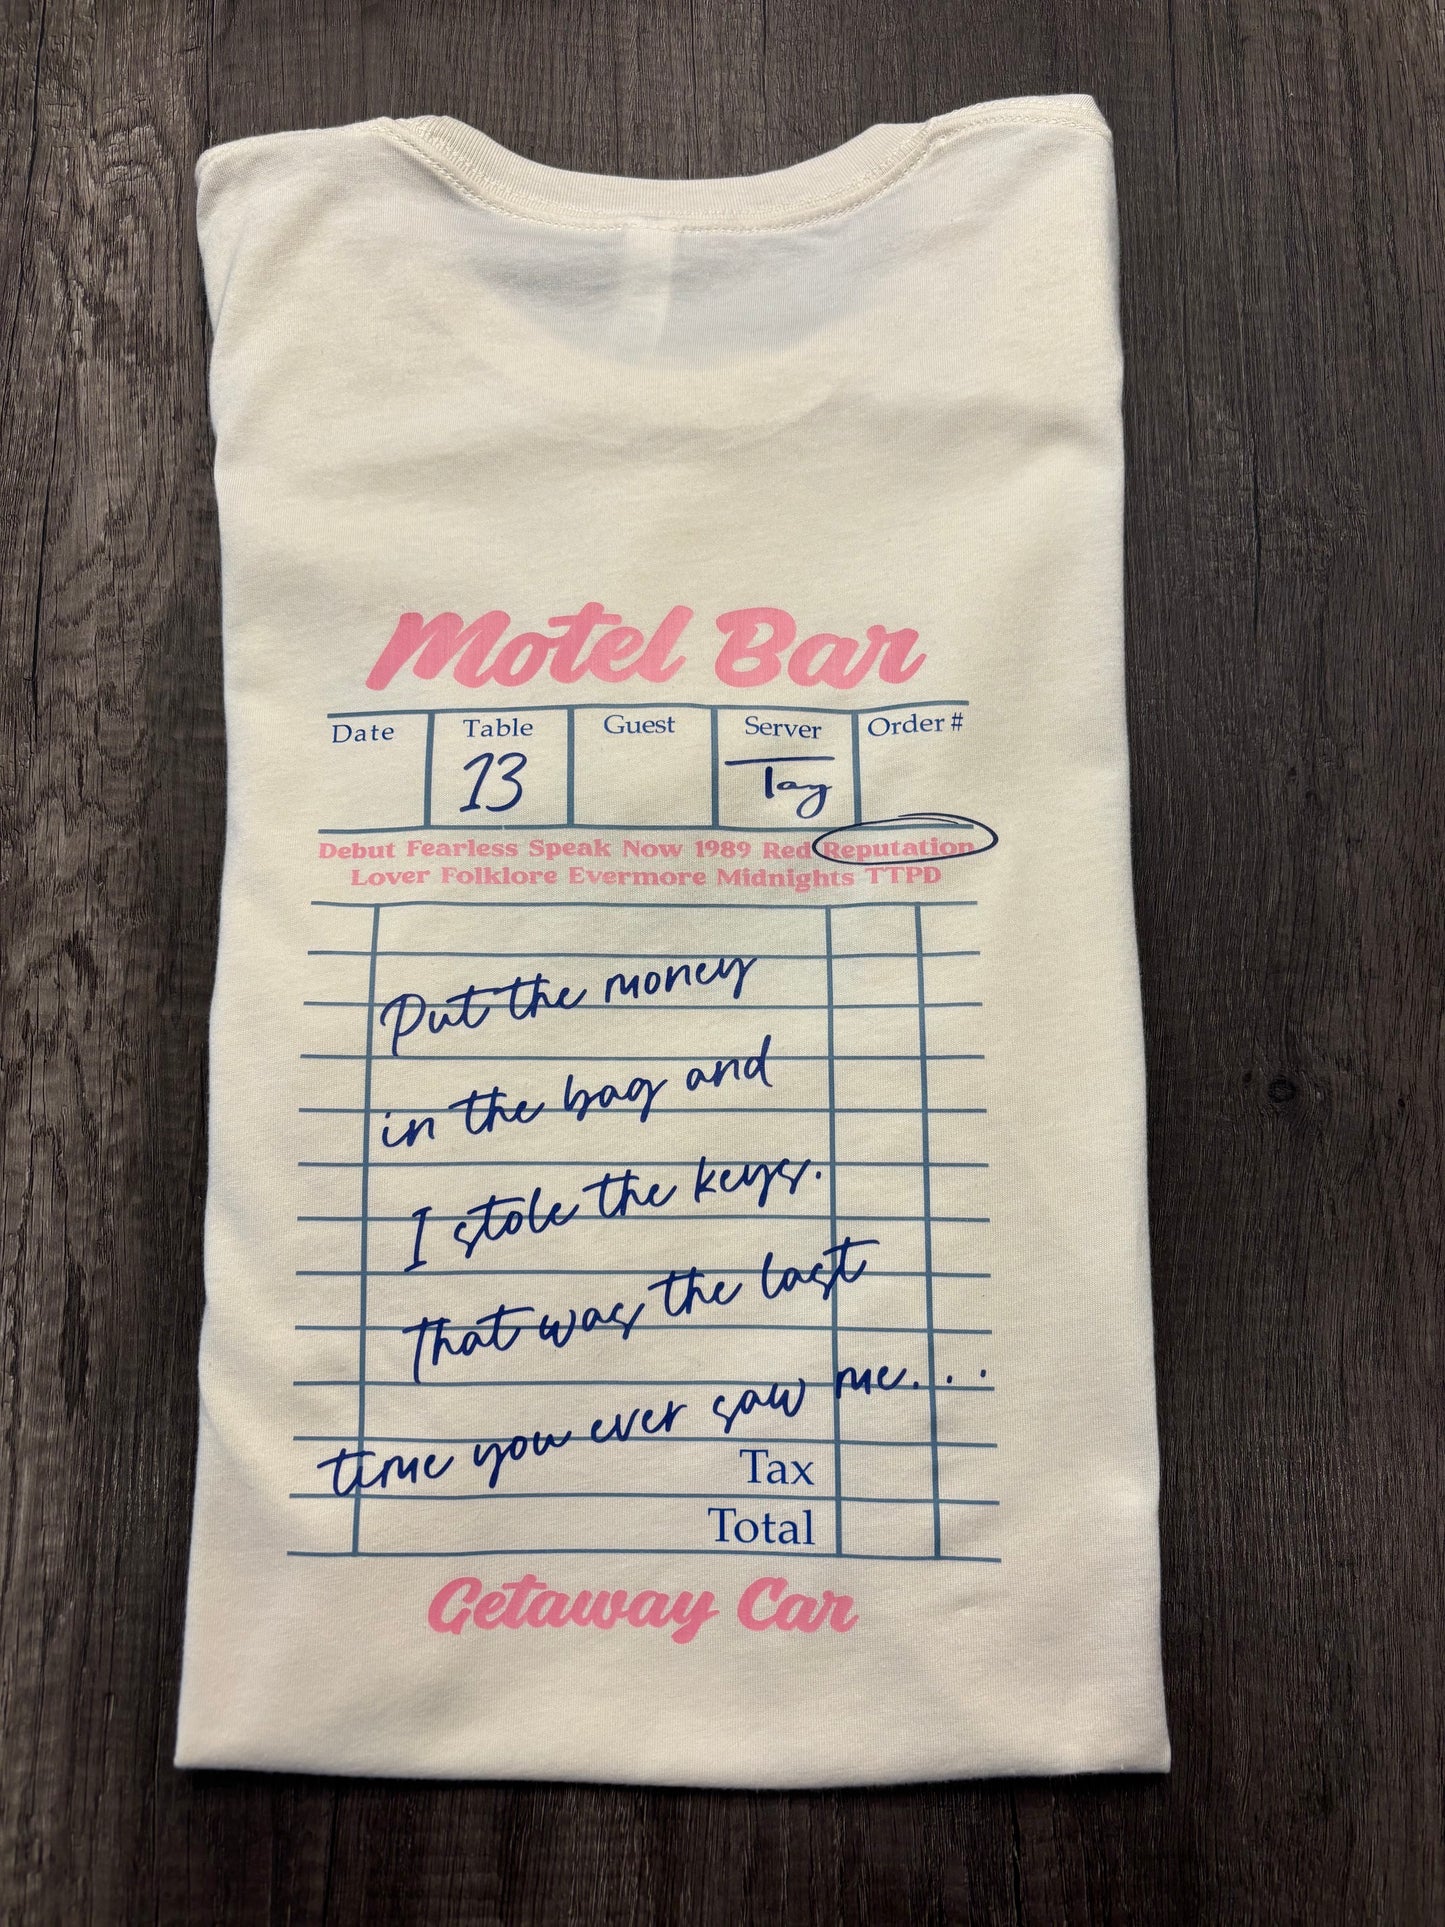 Motel Bar
Date Table Guest Server Order #
13 Tay
Debut Fearless Speak Now 1989 Red Reputation
Lover Folklore Evermore Midnights TTPD
Put the money
in the bag and
I stole the keys.
that was the last
time you ever saw me....
Tax
Total
Getaway Car